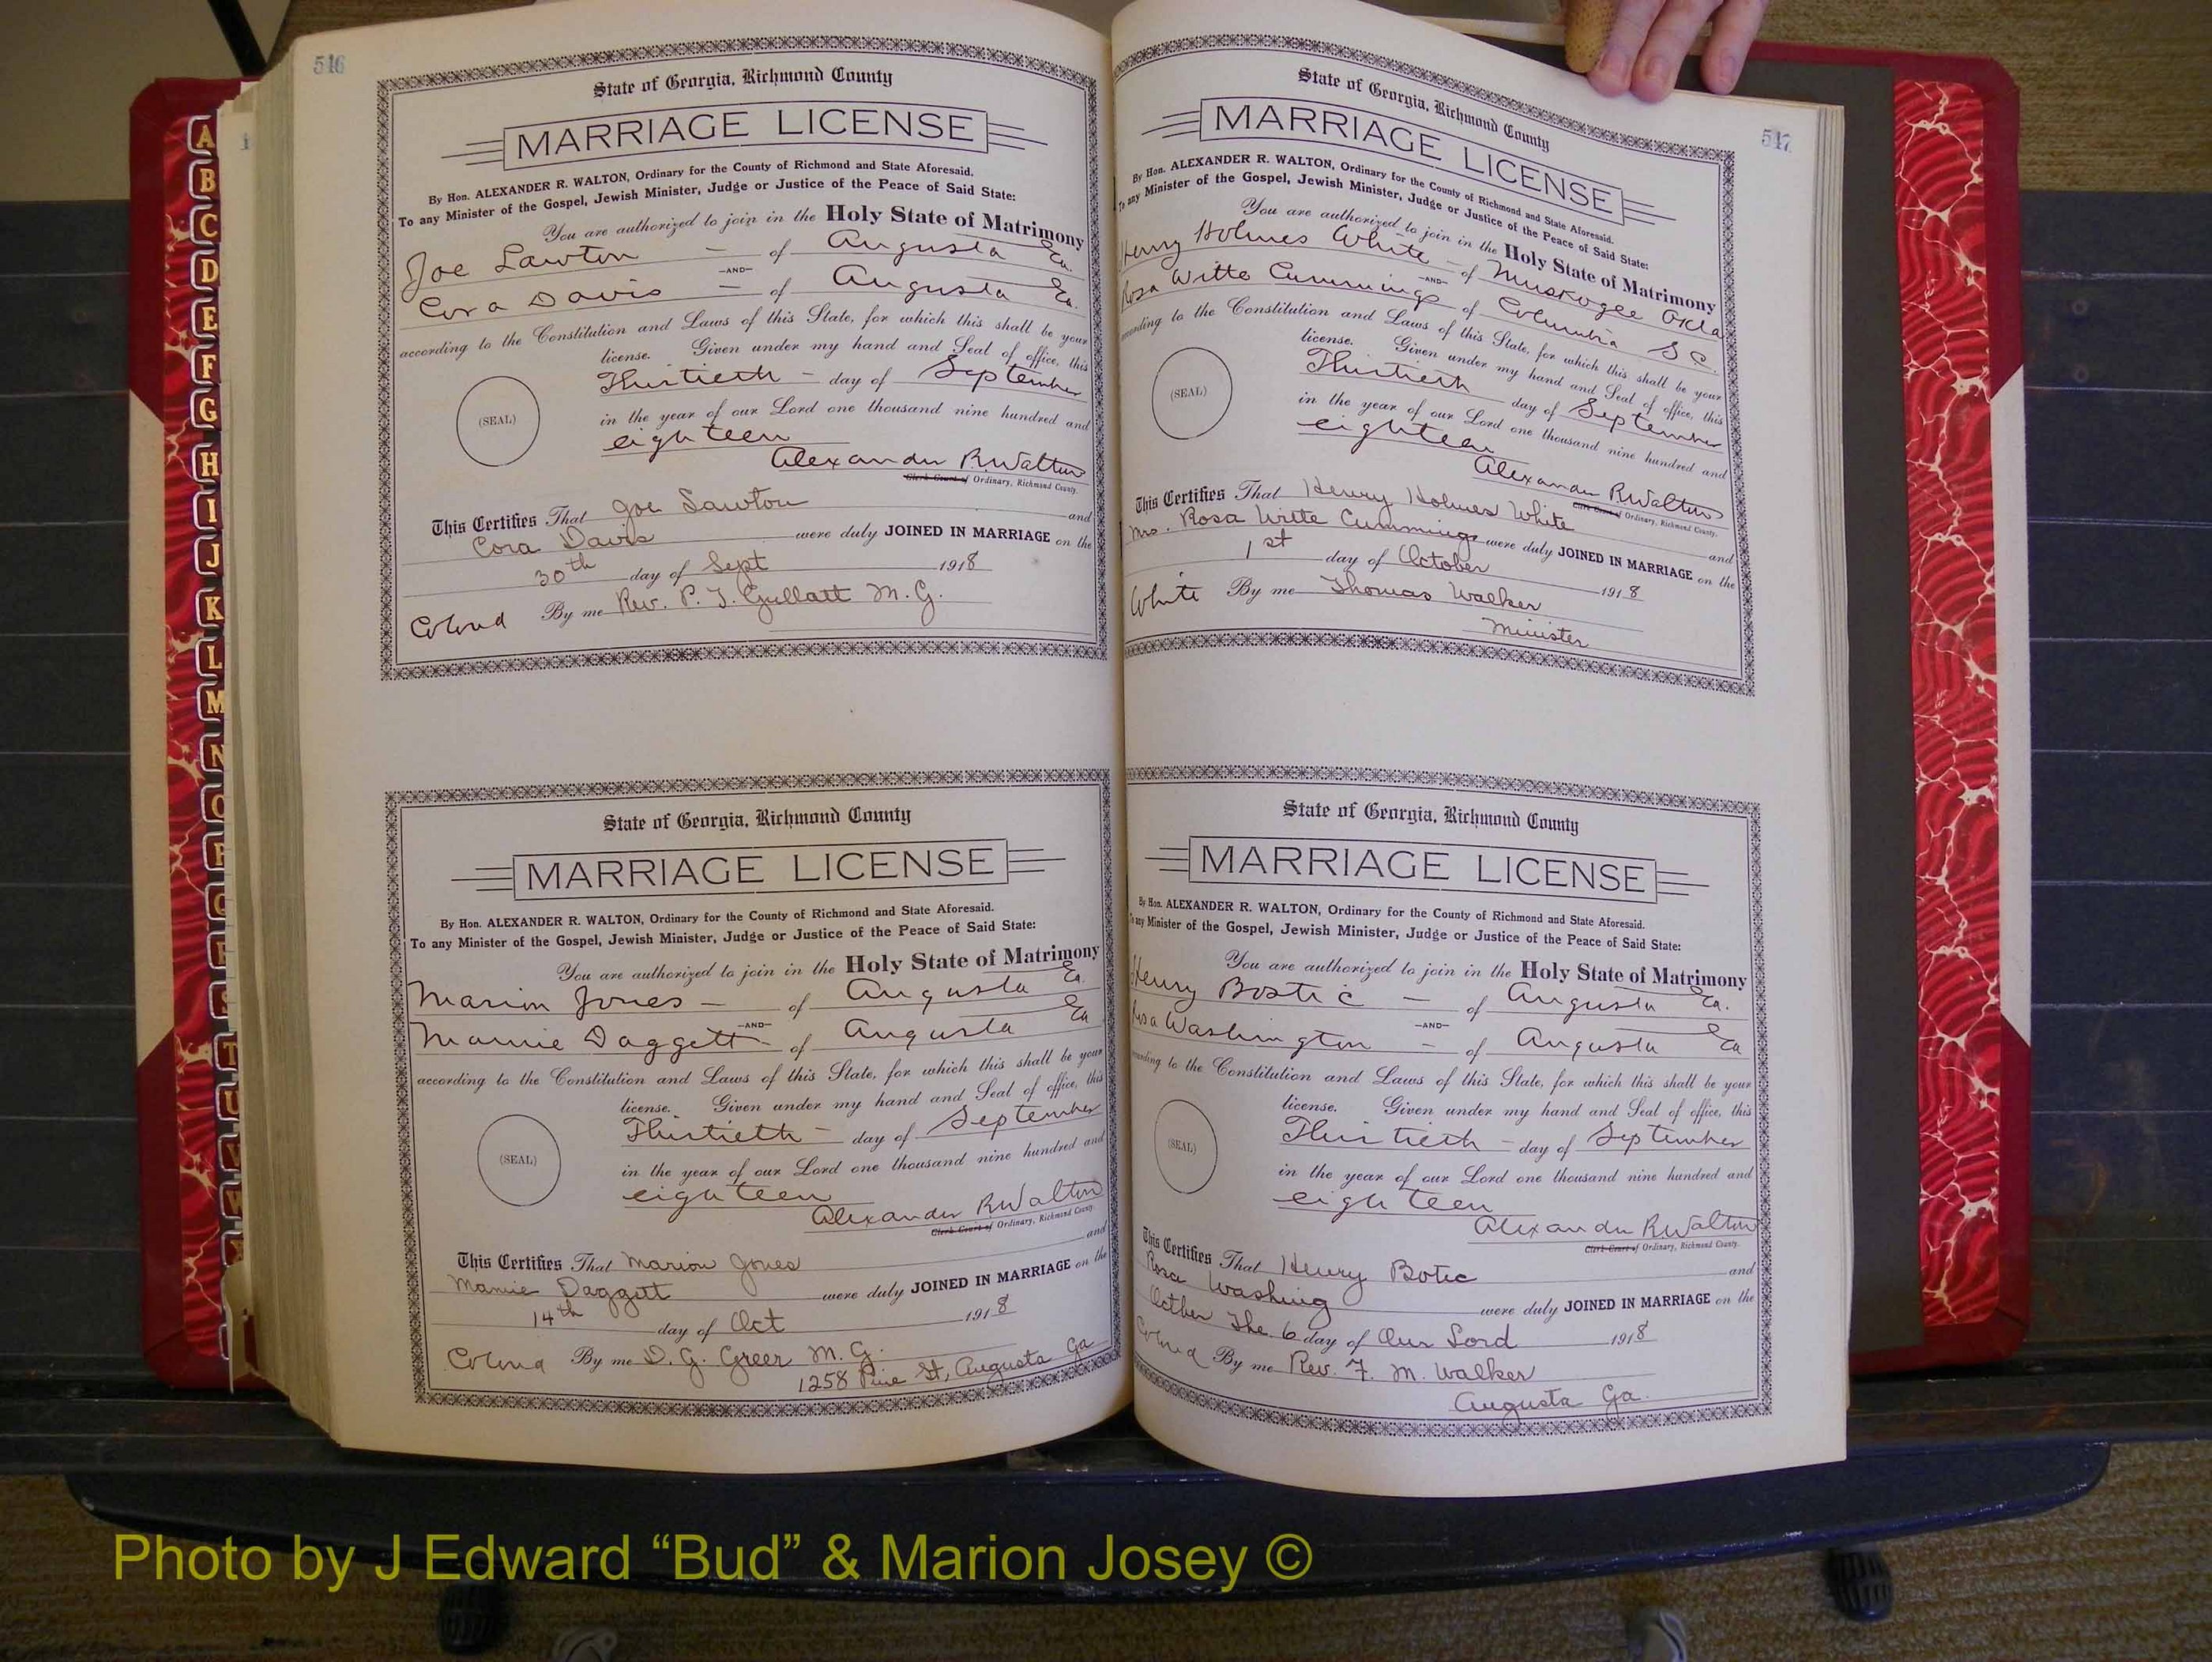 546
State of Georgia, Richmond County
MARRIAGE LICENSE
By Hon. ALEXANDER R. WALTON, Ordinary for the County of Richmond and State Aforesaid.
To any Minister of the Gospel, Jewish Minister, Judge or Justice of the Peace of Said State:
You are authorized to join in the Holy State of Matrimony
Joe Lawton — of Augusta Ga.
—AND—
Cora Davis — of Augusta Ga.
according to the Constitution and Laws of this State, for which this shall be your
license. Given under my hand and Seal of office, this
Thirtieth – day of September
(SEAL)
in the year of our Lord one thousand nine hundred and
eighteen
Alexander R. Walton
Clerk Court of Ordinary, Richmond County.
This Certifies That Joe Lawton and
Cora Davis were duly JOINED IN MARRIAGE on the
30th day of Sept 1918
Colored By me Rev. P. J. Gullatt M. G.
State of Georgia, Richmond County
MARRIAGE LICENSE
By Hon. ALEXANDER R. WALTON, Ordinary for the County of Richmond and State Aforesaid.
To any Minister of the Gospel, Jewish Minister, Judge or Justice of the Peace of Said State:
You are authorized to join in the Holy State of Matrimony
Marion Jones — of Augusta Ga.
—AND—
Mamie Daggett — of Augusta Ga
according to the Constitution and Laws of this State, for which this shall be your
license. Given under my hand and Seal of office, this
Thirtieth – day of September
(SEAL)
in the year of our Lord one thousand nine hundred and
eighteen
Alexander R Walton
Clerk Court of Ordinary, Richmond County.
This Certifies That Marion Jones and
Mamie Daggett were duly JOINED IN MARRIAGE on the
14th day of Oct 1918
Colored By me D. G. Greer M. G.
1258 Pine St, Augusta Ga
547
State of Georgia, Richmond County
MARRIAGE LICENSE
By Hon. ALEXANDER R. WALTON, Ordinary for the County of Richmond and State Aforesaid.
To any Minister of the Gospel, Jewish Minister, Judge or Justice of the Peace of Said State:
You are authorized to join in the Holy State of Matrimony
Henry Holmes White – of Muskogee Okla
—AND—
Rosa Witte Cummings of Columbia S C.
according to the Constitution and Laws of this State, for which this shall be your
license. Given under my hand and Seal of office, this
Thirtieth day of September
(SEAL)
in the year of our Lord one thousand nine hundred and
eighteen
Alexander R Walton
Clerk Court of Ordinary, Richmond County.
This Certifies That Henry Holmes White and
Mrs. Rosa Witte Cummings were duly JOINED IN MARRIAGE on the
1st day of October 1918
White By me Thomas Walker
Minister
State of Georgia, Richmond County
MARRIAGE LICENSE
By Hon. ALEXANDER R. WALTON, Ordinary for the County of Richmond and State Aforesaid.
To any Minister of the Gospel, Jewish Minister, Judge or Justice of the Peace of Said State:
You are authorized to join in the Holy State of Matrimony
Henry Bostic — of Augusta Ga.
—AND—
Rosa Washington – of Augusta Ga
according to the Constitution and Laws of this State, for which this shall be your
license. Given under my hand and Seal of office, this
Thirtieth – day of September
(SEAL)
in the year of our Lord one thousand nine hundred and
eighteen
Alexander R Walton
Clerk Court of Ordinary, Richmond County.
This Certifies That Henry Botic and
Rosa Washing were duly JOINED IN MARRIAGE on the
Octber The 6 day of Our Lord 1918
Colored By me Rev. F. M. Walker
Augusta Ga.
A
B
C
D
E
F
G
H
I
J
K
L
M
N
O
P
Q
R
S
T
U
V
W
Photo by J Edward “Bud” & Marion Josey ©